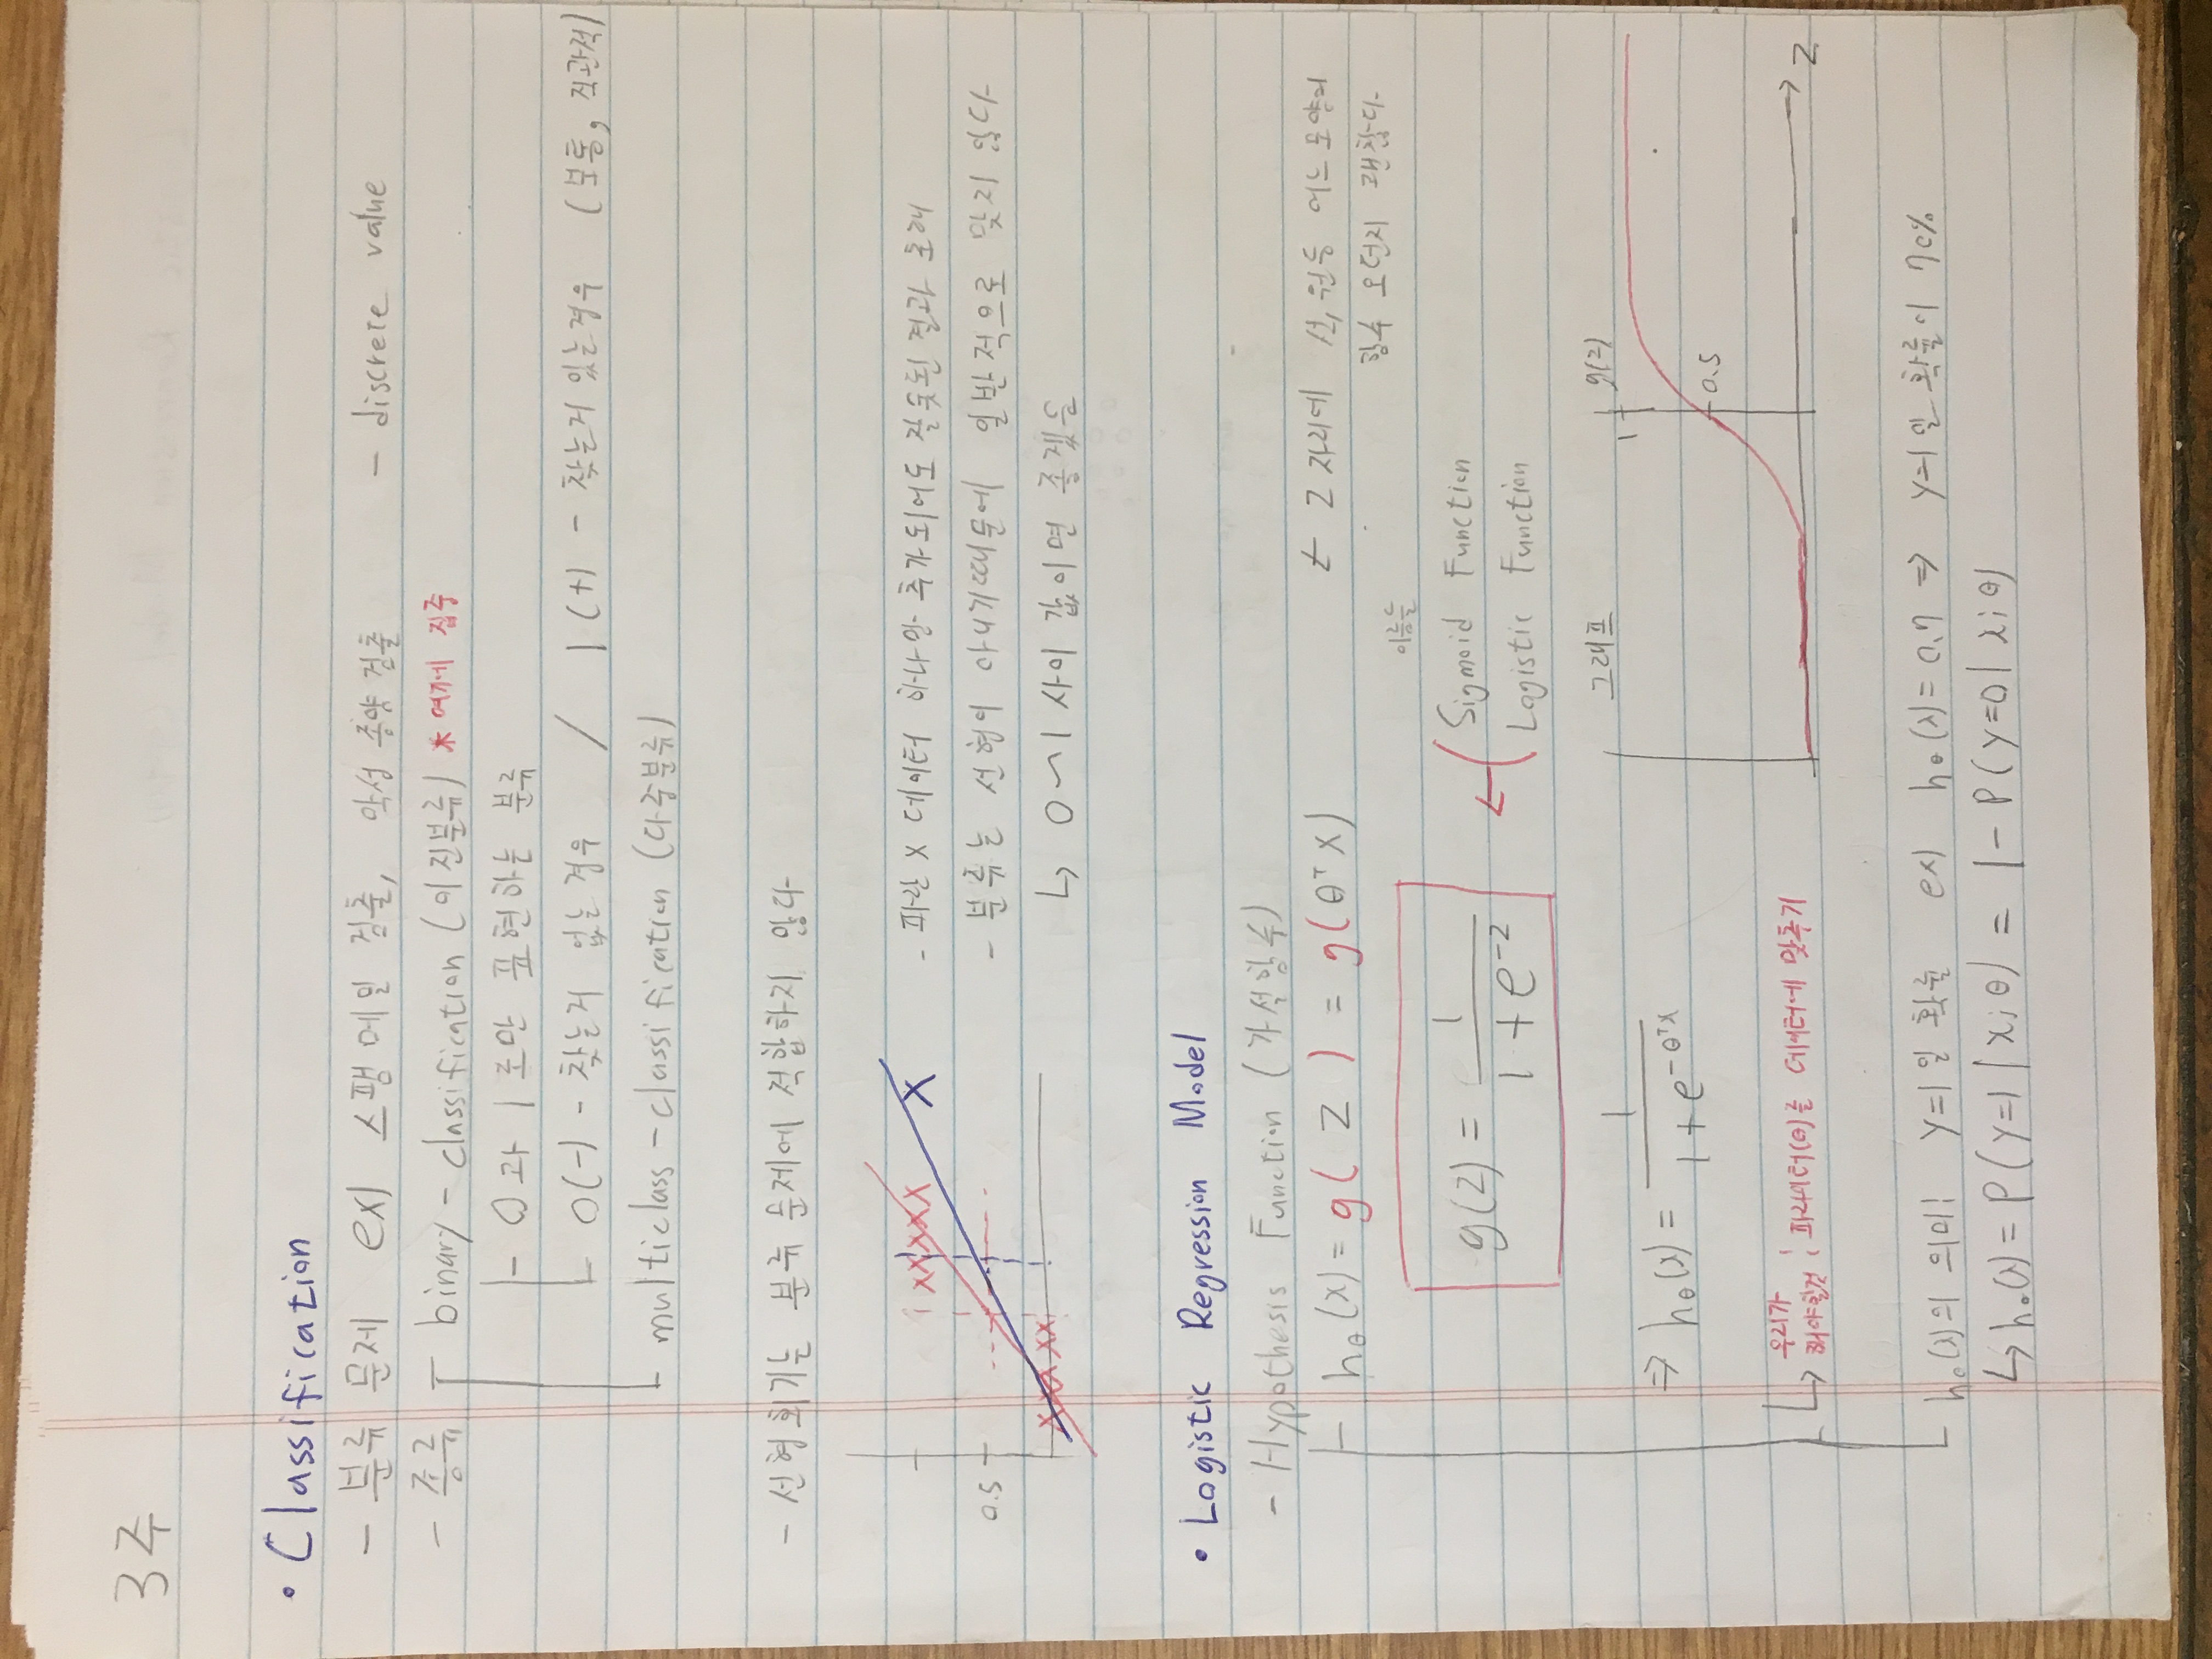 3주
• Classification
- 분류 문제 ex) 스팸메일 검출, 악성 종양 검출 - discrete value
- 종류 binary - classification (이진분류) * 여기에 집중
- 0과 1로만 표현하는 분류
0(-) - 찾는게 없는 경우 / 1(+) - 찾는게 있는 경우 (보통, 직관적)
multiclass - classification (다중분류)
- 선형회기는 분류 문제에 적합하지 않다
xxxxx X
0.5
xxxxx
- 파란 x 데이터 하나만 추가되어도 잘못된 결과 초래
- 분류는 선형이 아니기때문에 일반적으로 맞지 않다
↳ 0~1 사이 값이면 좋겠음
• Logistic Regression Model
- Hypothesis Function (가설함수)
hθ(x) = g( z ) = g(θᵀx) ← z 자리에 선, 원등 어느 모양의
함수 오던지 괜찮다
이름들
g(z) = 1 / (1 + e^-z) ← ( Sigmoid Function
Logistic Function
⇒ hθ(x) = 1 / (1 + e^-θᵀx)
그래프 g(z)
1
0.5
z
우리가
해야할것 : 파라미터(θ)를 데이터에 맞추기
hθ(x)의 의미: y=1일 확률 ex) hθ(x) = 0.7 ⇒ y=1일 확률이 70%
↳ hθ(x) = P(y=1 | x; θ) = 1 - P(y=0 | x; θ)